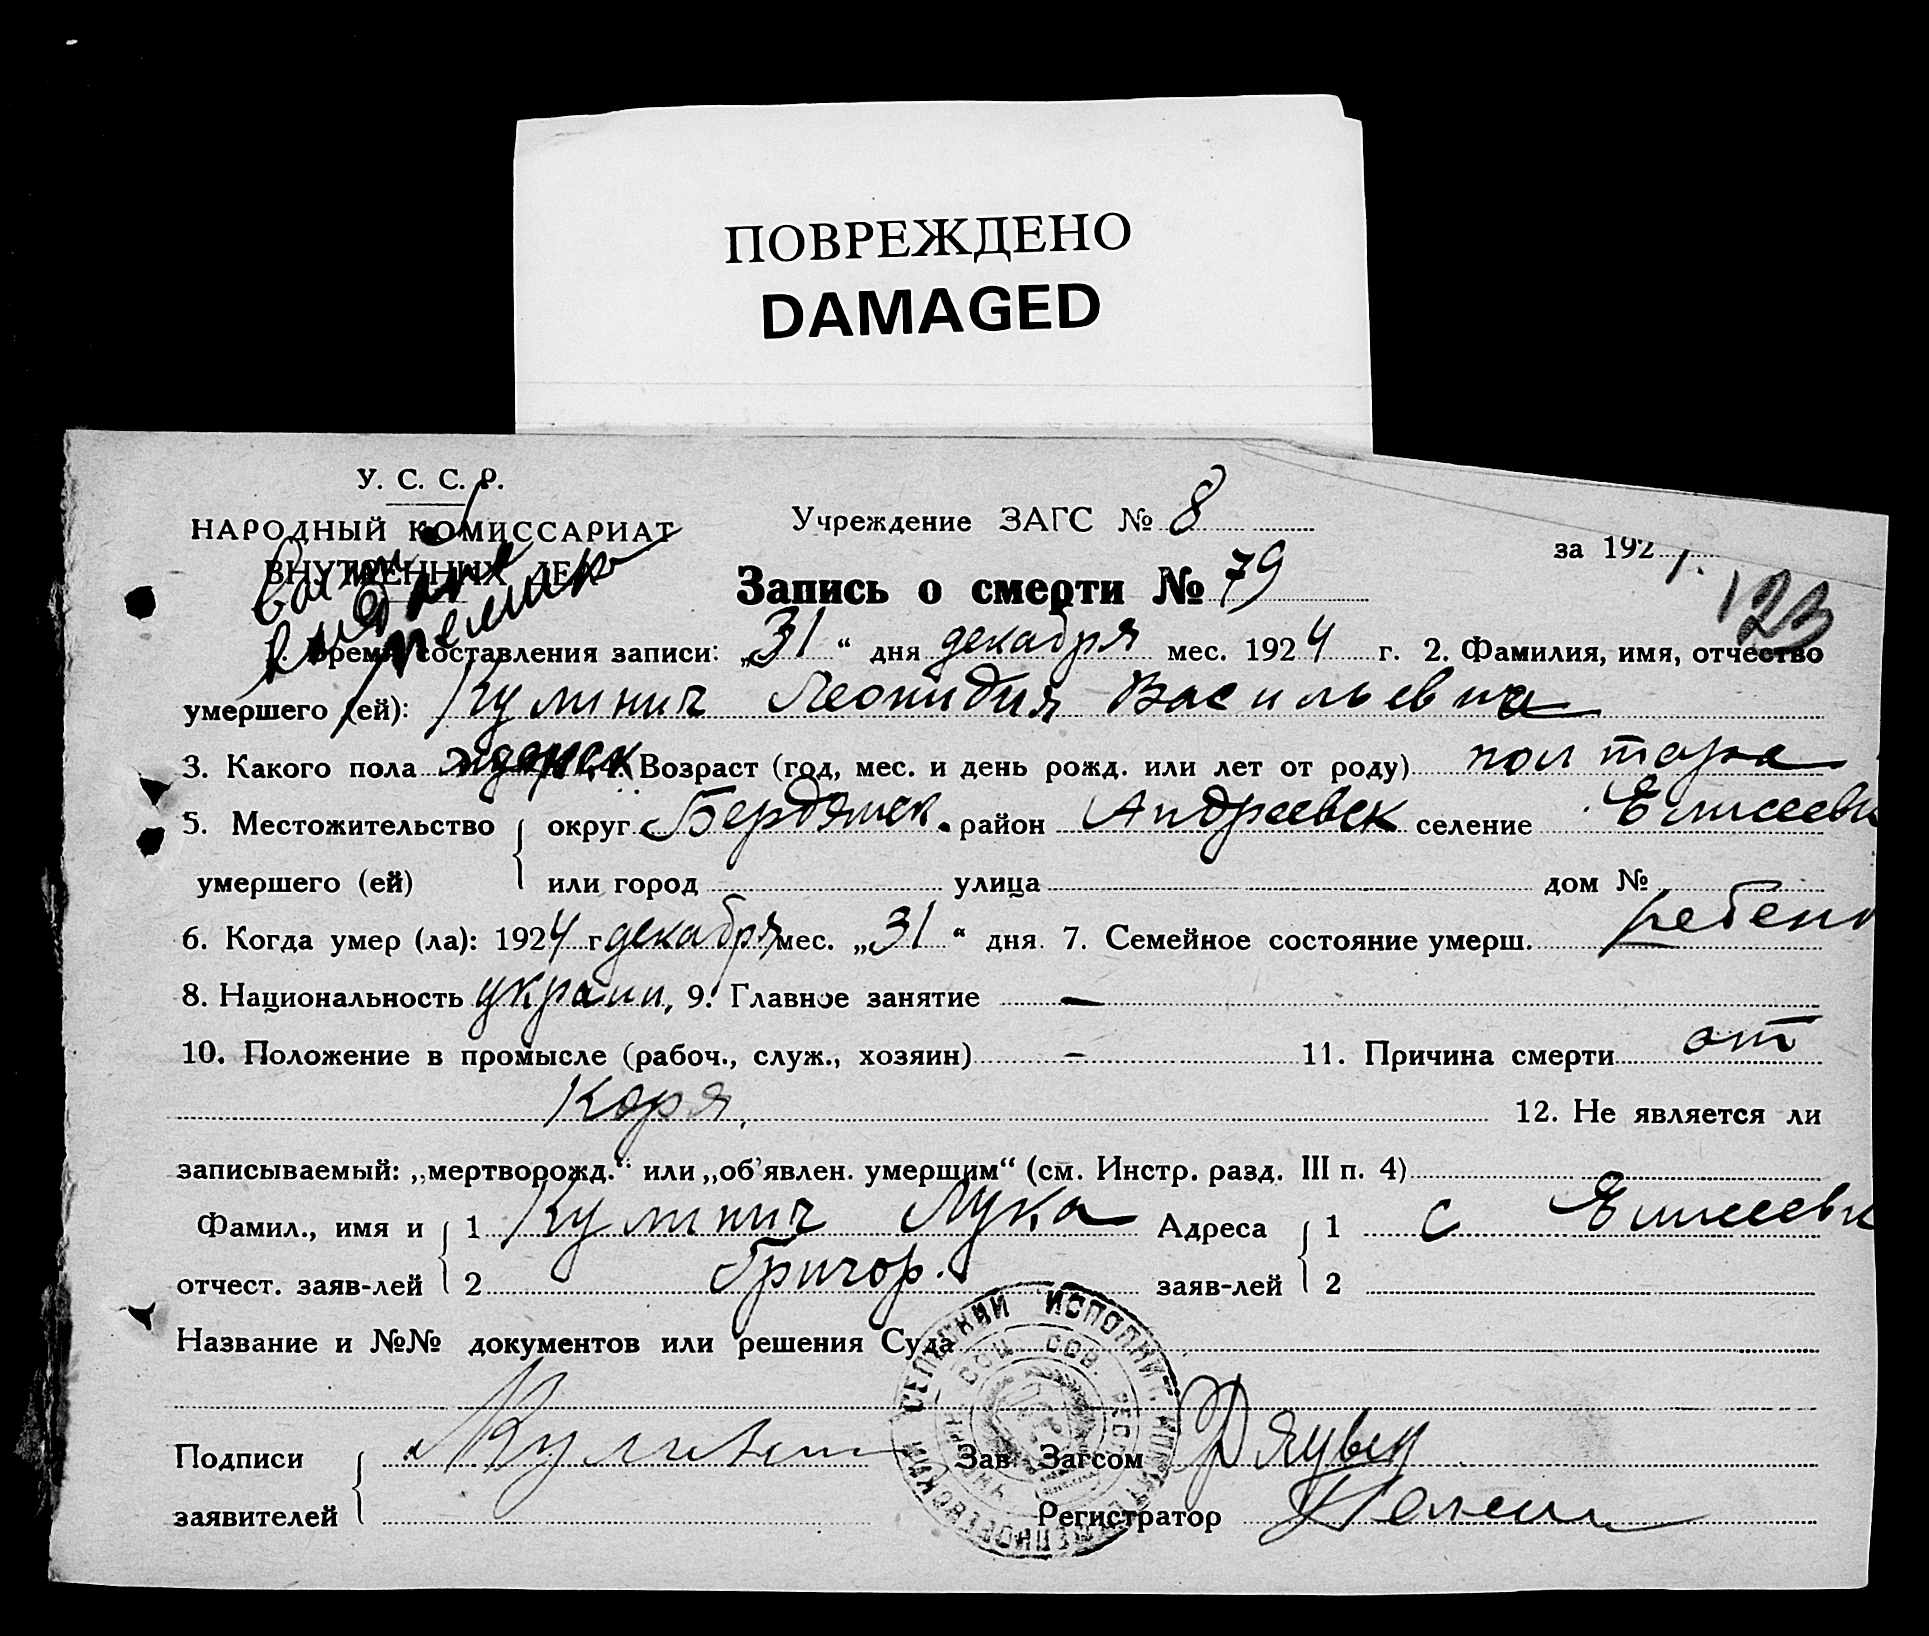 ПОВРЕЖДЕНО
DAMAGED
У. С. С. Р.
НАРОДНЫЙ КОМИССАРИАТ
ВНУТРЕННИХ ДЕЛ
Учреждение ЗАГС № 8
за 192
Запись о смерти № 79
123
1. Время составления записи: „31“ дня декабря мес. 1924 г. 2. Фамилия, имя, отчество
умершего (ей): Кулинич Леонидия Васильевна
3. Какого пола женск 4. Возраст (год, мес. и день рожд. или лет от роду) полтора
5. Местожительство округ Бердянск. район Андреевск селение Елисеевк
умершего (ей) или город улица дом №
6. Когда умер (ла): 1924 г декабря мес. „31“ дня. 7. Семейное состояние умерш. ребено
8. Национальность украин, 9. Главное занятие —
10. Положение в промысле (рабоч., служ., хозяин) - 11. Причина смерти от
Коря 12. Не является ли
записываемый: „мертворожд.“ или „об’явлен. умершим“ (см. Инстр. разд. III п. 4)
Фамил., имя и 1 Кулинич Лука Адреса 1 с Елисеевк
отчест. заяв-лей 2 Григор. заяв-лей 2
Название и №№ документов или решения Суда
СЕЛЬСКИЙ ИСПОЛНИТ.
СОЦ. СОВ. РЕСП
Подписи Зав Загсом
заявителей Регистратор